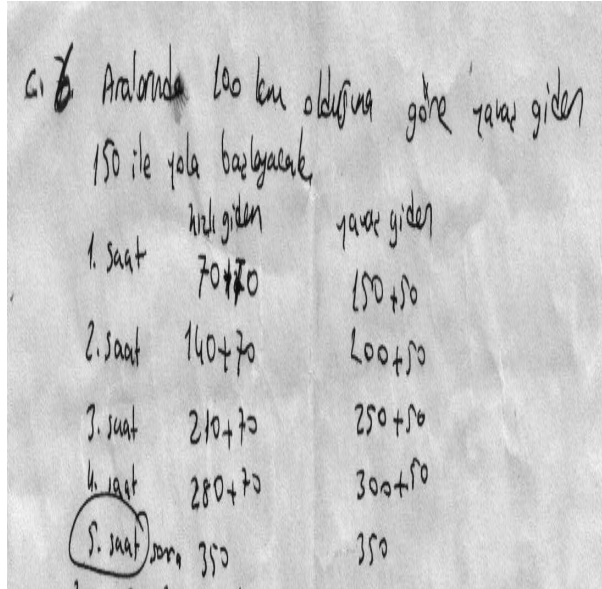 C. Aralarında 100 km olduğuna göre yavaş giden
150 ile yola başlayacak,
hızlı giden yavaş giden
1. saat 70+70 150+50
2. saat 140+70 200+50
3. saat 210+70 250+50
4. saat 280+70 300+50
5. saat sonra 350 350